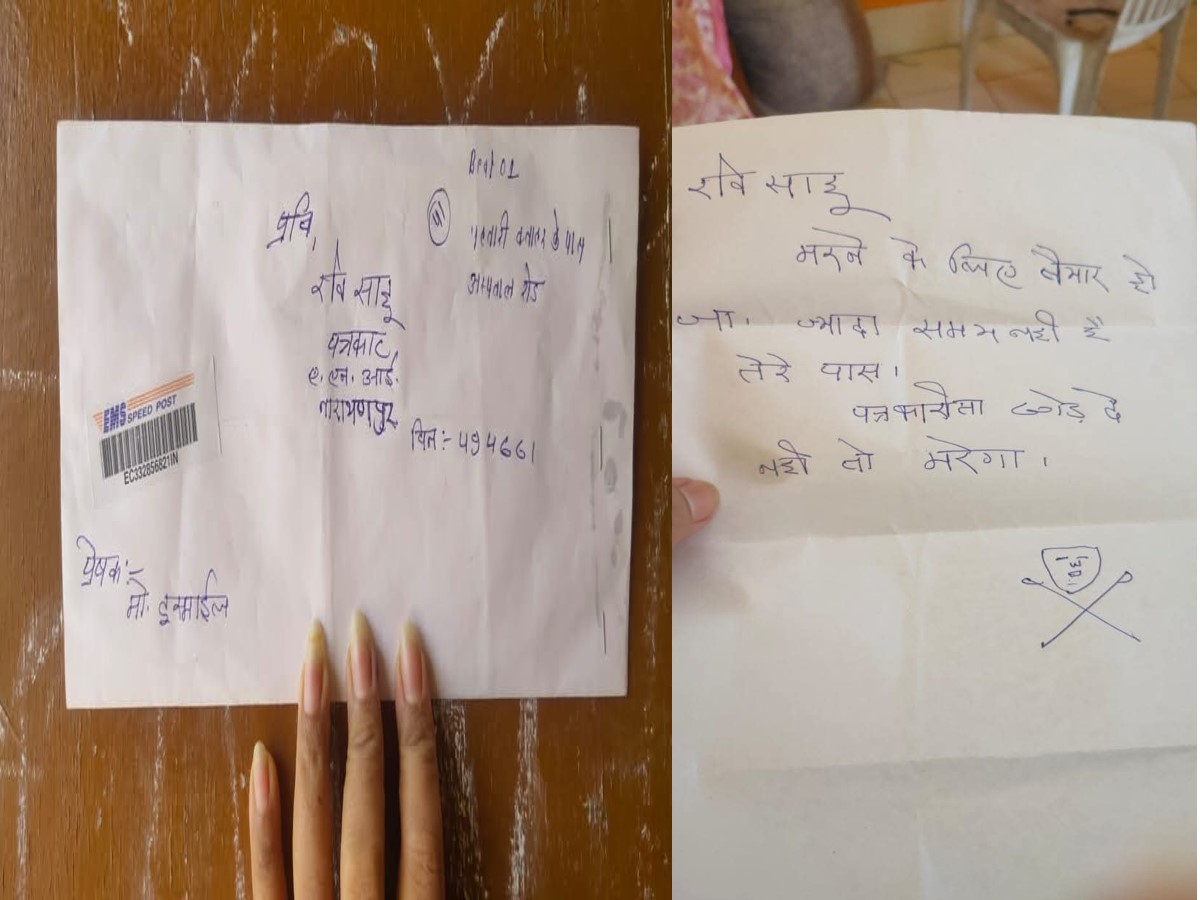 Beat 01
प्रति,
पटवारी
के पास
अस्पताल रोड
रवि साहू
पत्रकार
ए. एन. आई.
नारायणपुर
पिन :- 494661
EMS SPEED POST
EC332856821IN
प्रेषक :-
मो. इस्माईल
रवि साहू
मरने के लिए तैयार हो
जा। ज्यादा समय नही है
तेरे पास।
पत्रकारीता छोड़ दे
नही तो मरेगा।